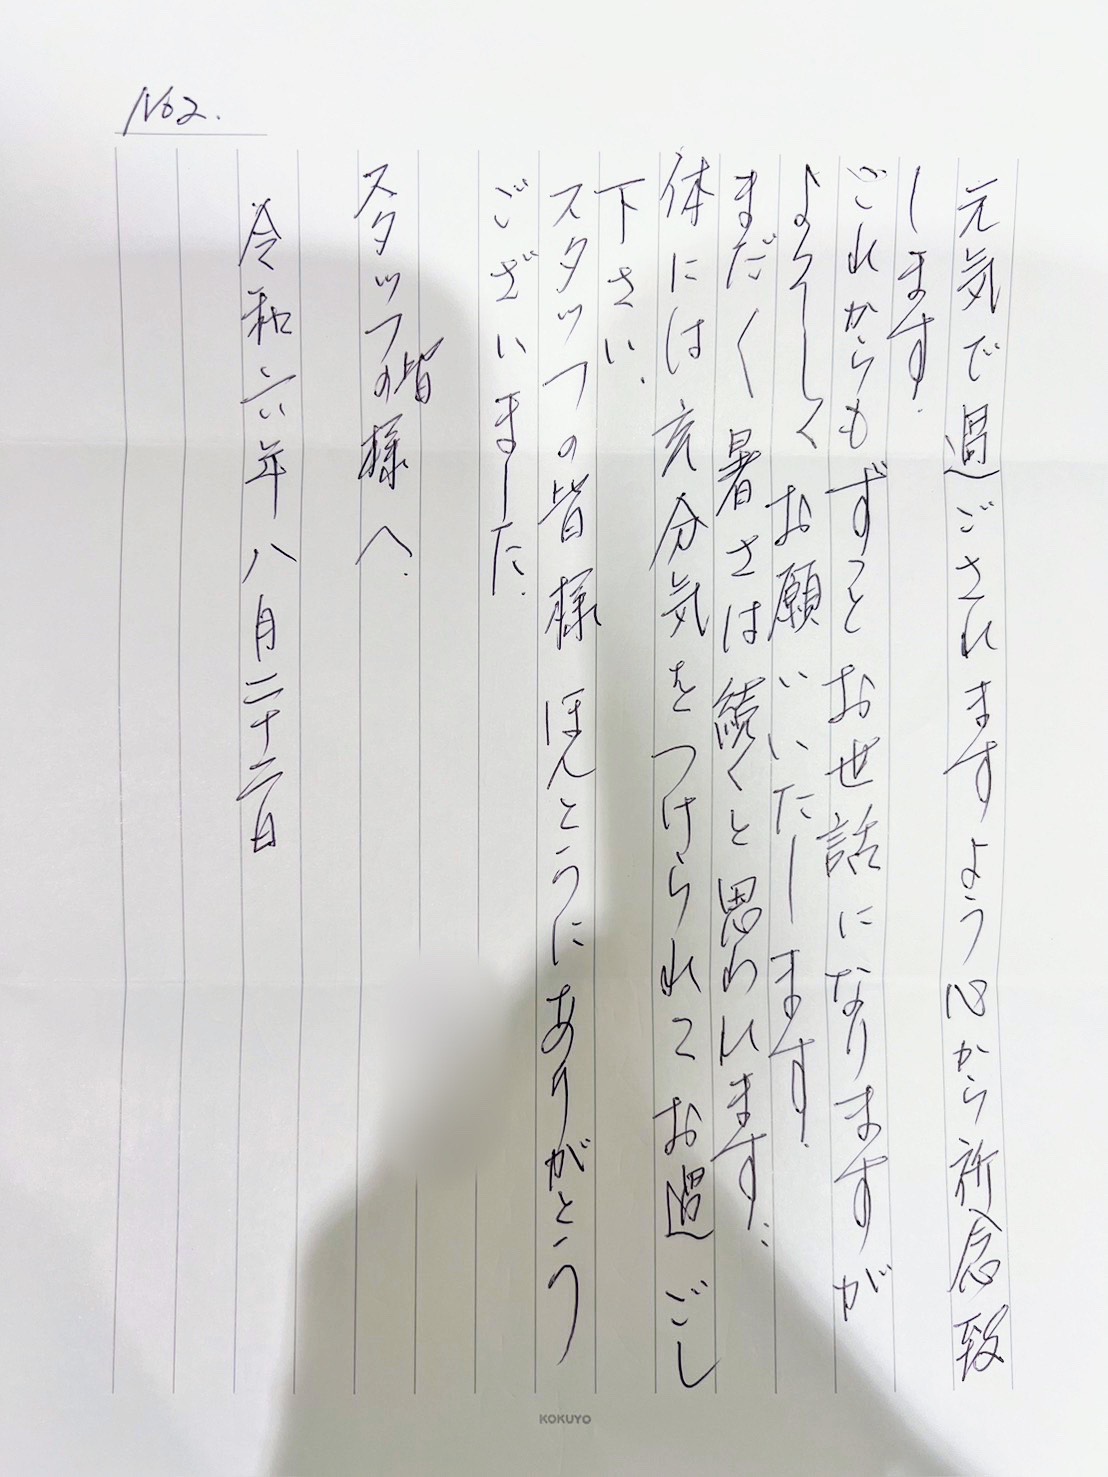 No2.
元気で過ごされますよう心から祈念致
します.
これからもずっとお世話になりますが
よろしくお願いいたします.
まだ〱暑さは続くと思われます.
体には充分気をつけられてお過ごし
下さい.
スタッフの皆様ほんとうにありがとう
ございました.
スタッフの皆様へ.
令和六年八月二十六日
KOKUYO